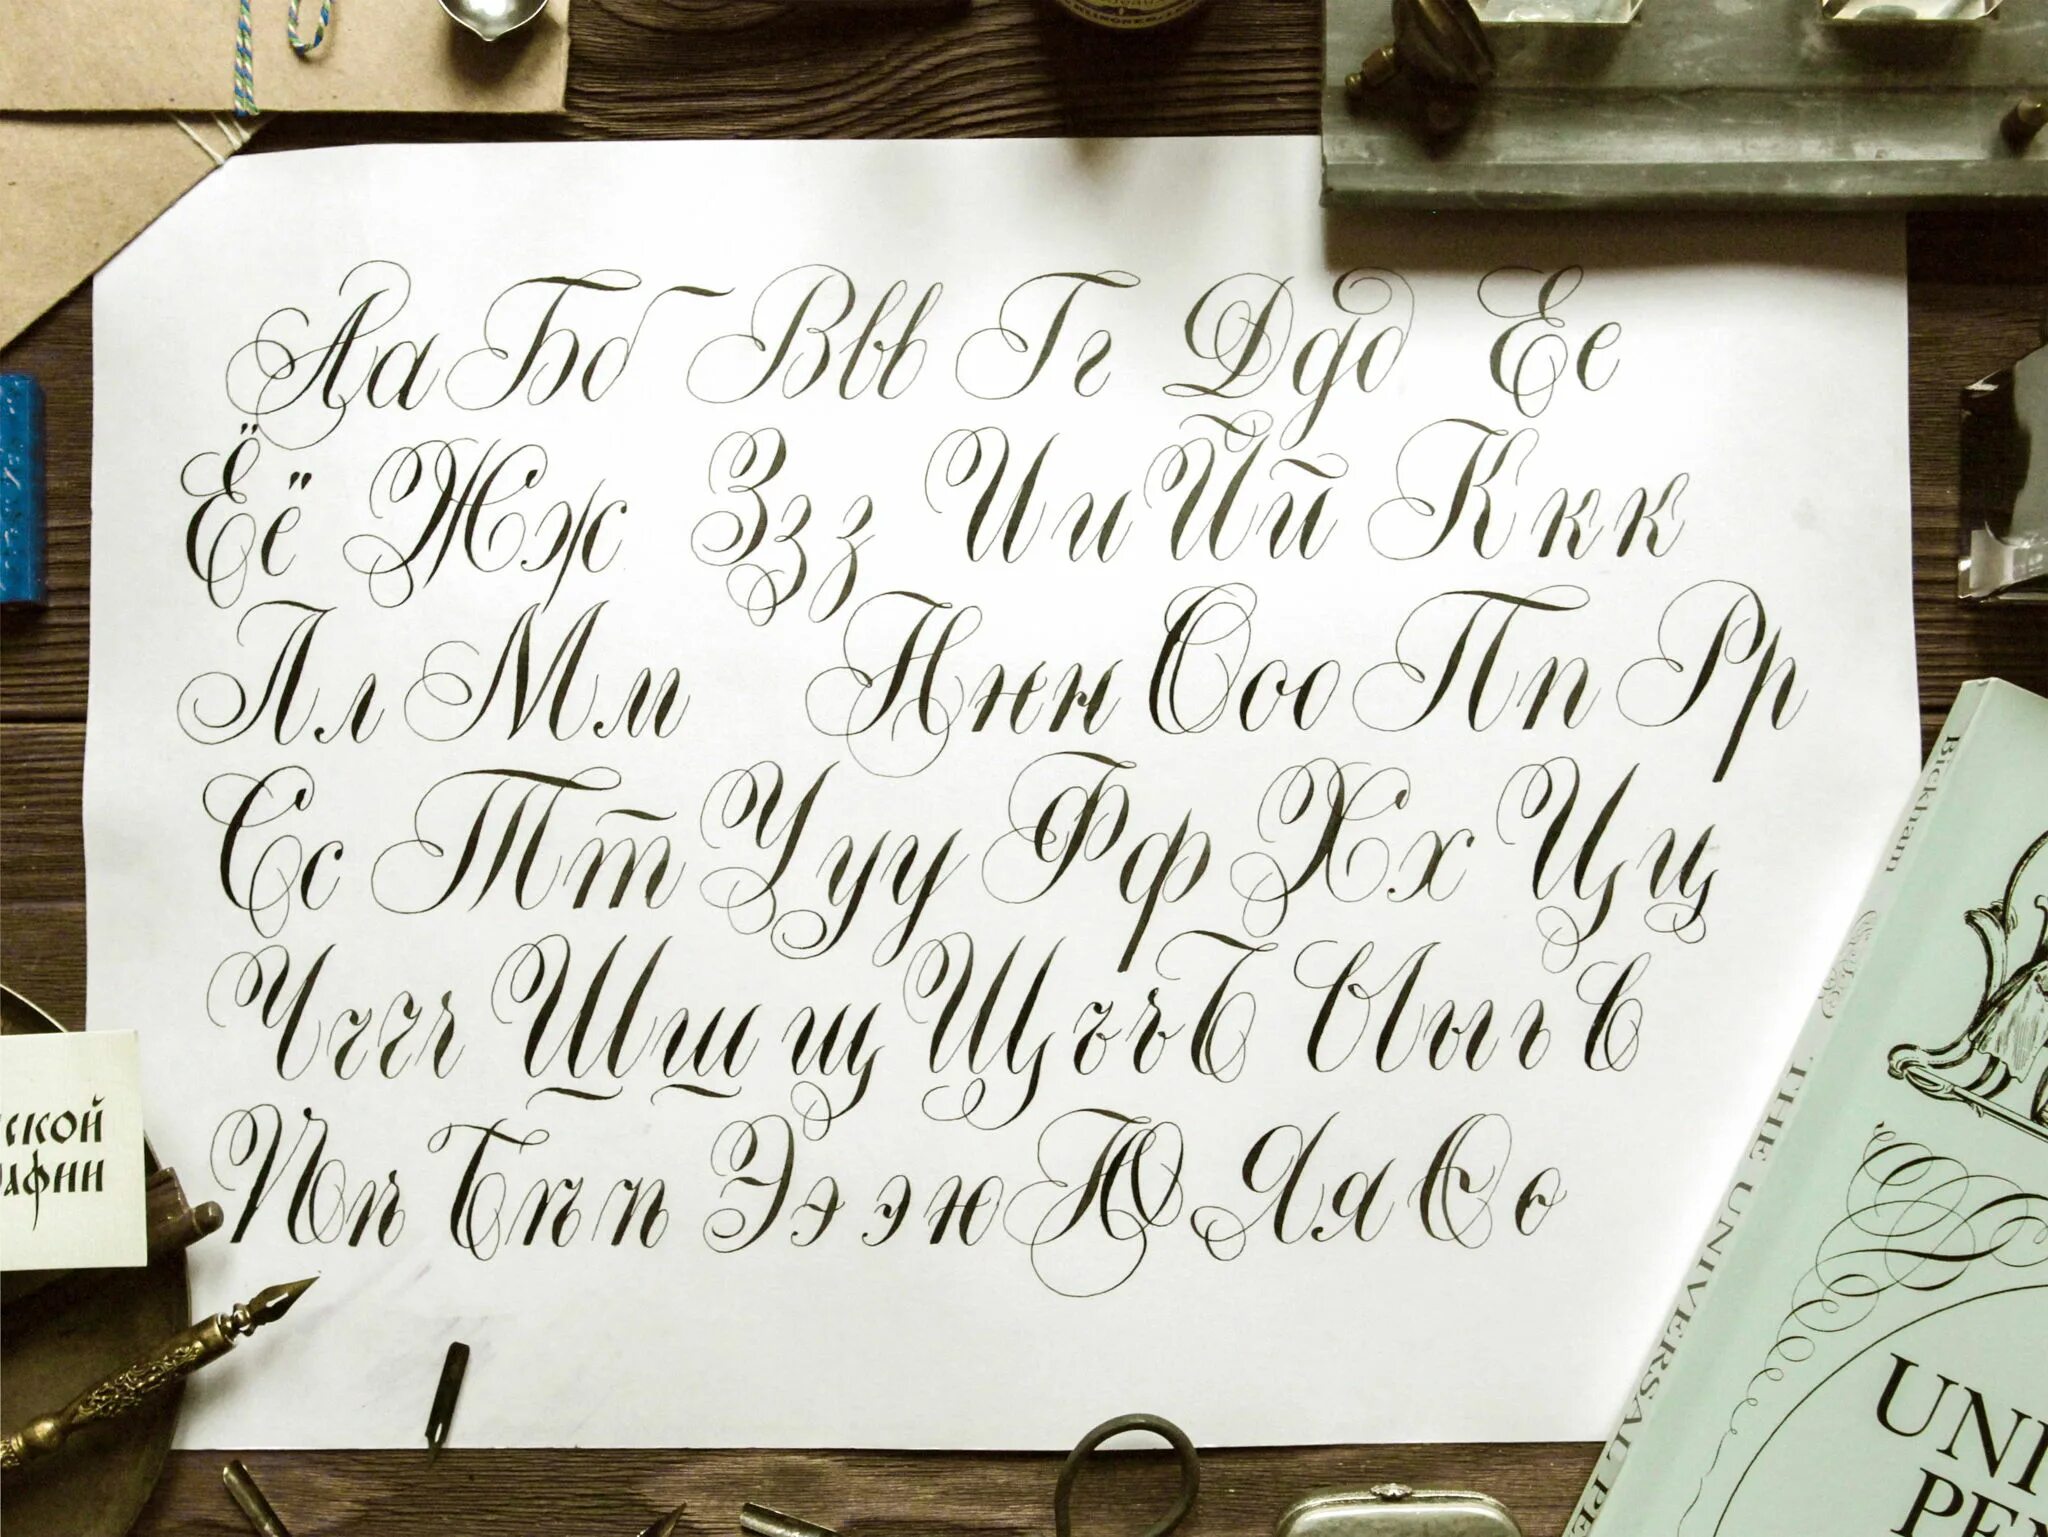 Аа Бб Ввв Гг Ддд Ее
Ёё Жж Ззз Ии Йй Ккк
Лл Мм Ннн Ооо Пп Рр
Сс Тт Ууу Фф Хх Цц
Чччч Шш щЩ ъъЪ Ыы ьЬ
Ээээ юЮ Яя
ской
афии
Bickham
THE UNIVERSAL PE
UNI
PEN